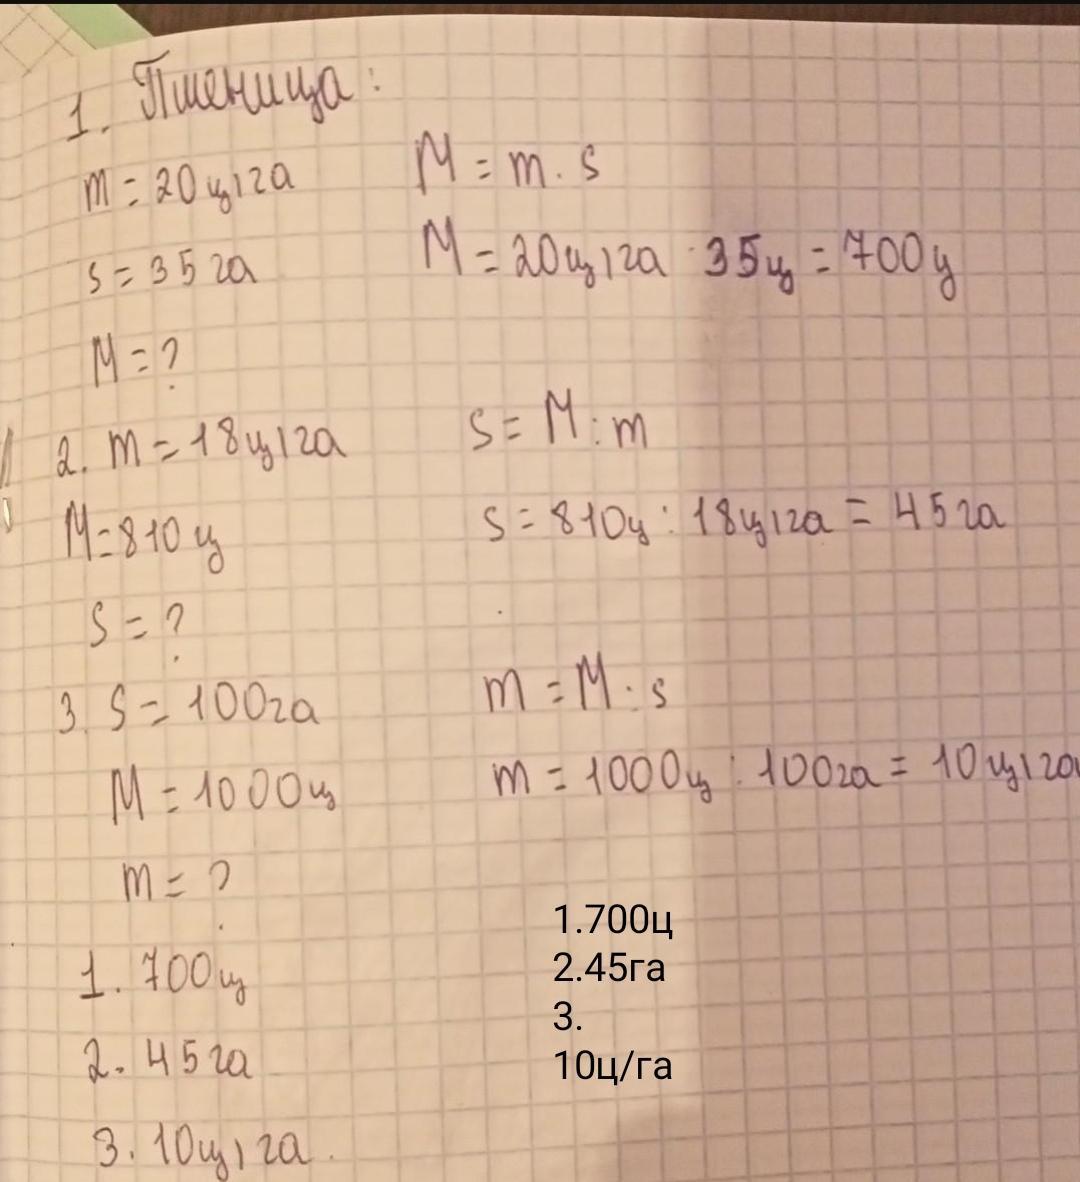 1. Пшеница:
m = 20ц/га
M = m · s
s = 35 га
M = 20ц/га · 35ц = 700ц
M = ?
2. m = 18ц/га
s = M : m
M = 810 ц
s = 810ц : 18ц/га = 45 га
S = ?
3. S = 100га
m = M : s
M = 1000ц
m = 1000ц : 100га = 10ц/га
m = ?
1. 700ц
2. 45 га
3. 10ц/га.
1.700ц
2.45га
3.
10ц/га